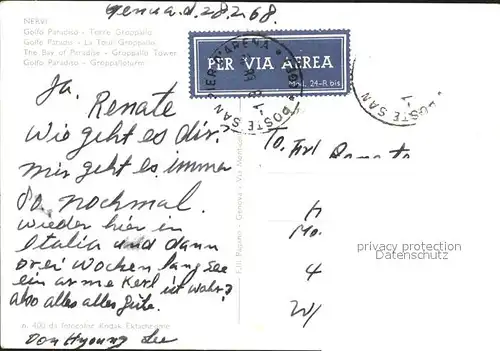 Genua d. 28.2.68.
NERVI
Golfo Paradiso - Torre Groppallo
Golfe Paradis - La Tour Groppallo
The Bay of Paradise - Groppallo Tower
Golfo Paradiso - Groppalloturm
PER VIA AEREA
Mod. 24-R bis
POSTE SAN
POSTE SAN
Ja. Renate
Wie geht es dir.
mir geht es immer
so. nochmal.
wieder hier in
Italia und dann
drei Wochen lang See
ein arme Kerl ist wahr?
also alles alles gute.
To. Frl Renate
H
Mo.
4
W/
privacy protection
Datenschutz
n. 400 da fotocolor Kodak Ektachrome
Don Hyoung Lee